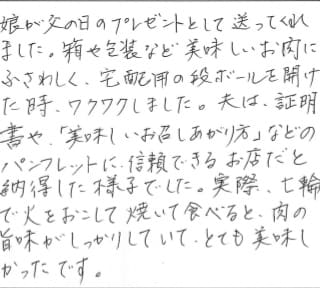 娘が父の日のプレゼントとして送ってくれ
ました。箱や包装など美味しいお肉に
ふさわしく、宅配用の段ボールを開け
た時、ワクワクしました。夫は、証明
書や、「美味しいお召しあがり方」などの
パンフレットに、信頼できるお店だと
納得した様子でした。実際、七輪
で火をおこして焼いて食べると、肉の
旨味がしっかりしていて、とても美味し
かったです。